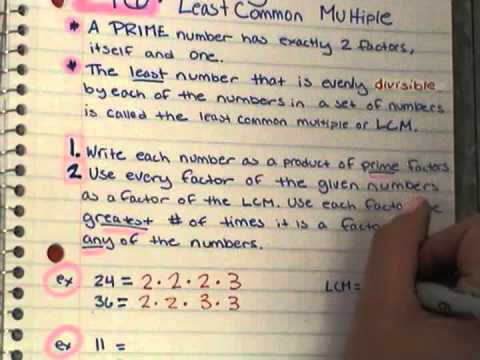 Least Common Multiple
* A PRIME number has exactly 2 factors,
itself and one.
* The least number that is evenly divisible
by each of the numbers in a set of numbers
is called the least common multiple or LCM.
1. Write each number as a product of prime factors
2 Use every factor of the given numbers
as a factor of the LCM. Use each
greatest # of times it is a
any of the numbers.
ex 24 = 2·2·2·3 LCM=
36 = 2·2·3·3
ex 11 =